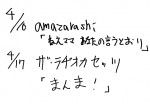 4/16 amazarashi
「教えてママ あなたの言うとおり」
4/17 ザ・ラヂオカセッツ
「まんま！」